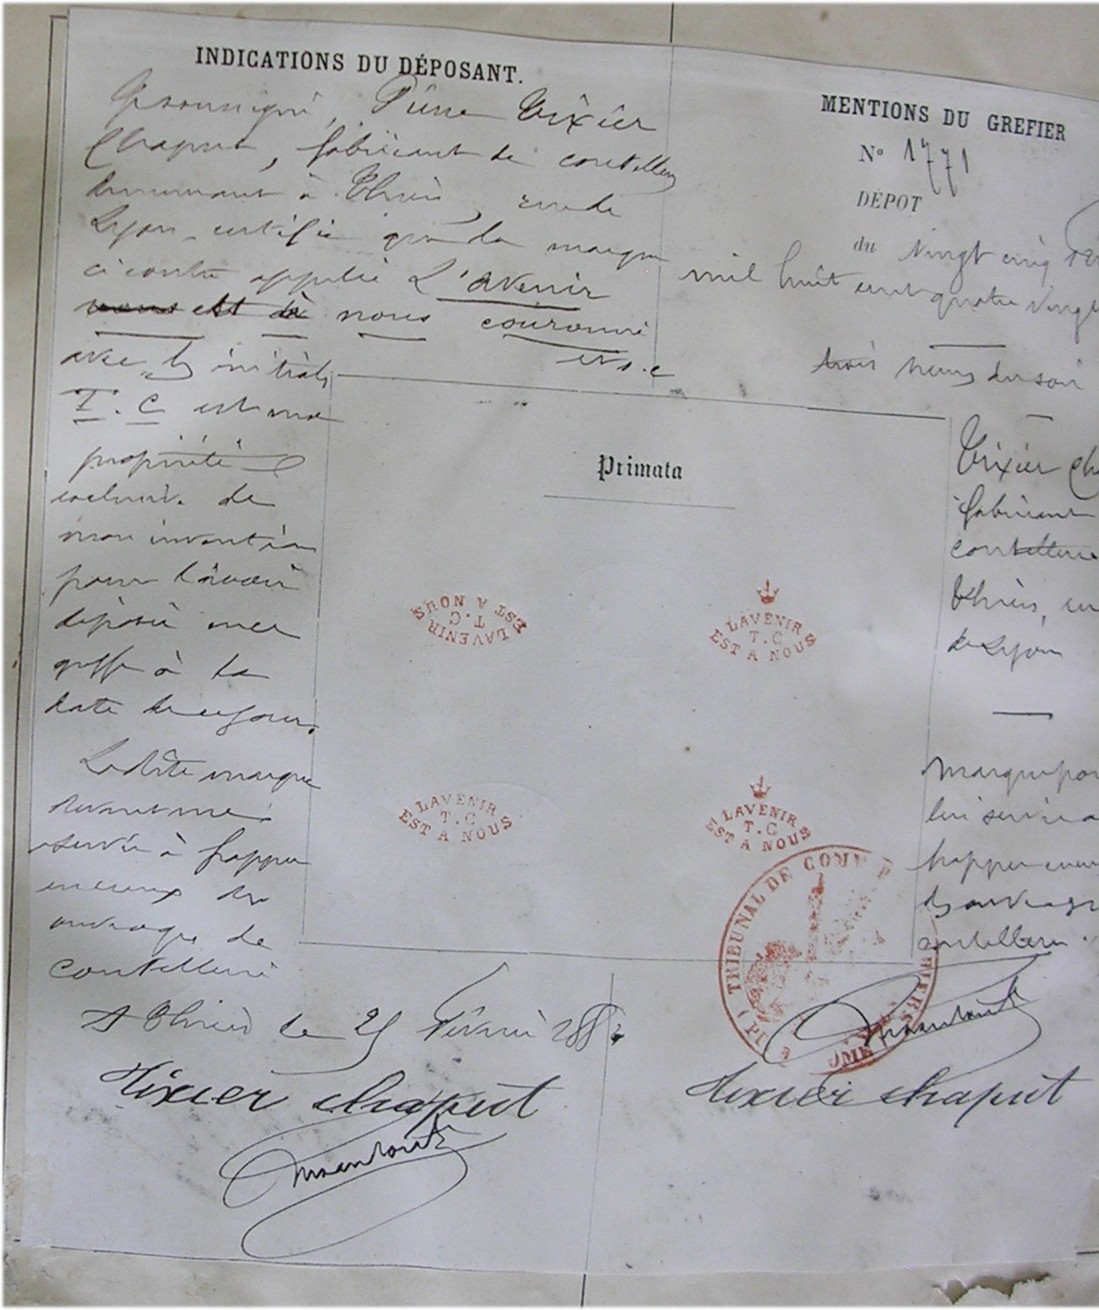 INDICATIONS DU DÉPOSANT.
Je soussigné, Pierre Tixier
Chaput, fabricant de coutellerie
demeurant à Thiers, rue de
Lyon, certifie que la marque
ci contre appelée L'avenir
est à nous couronné
avec les initiales
T. C est ma
propriété
exclusive de
mon invention
pour l'avoir
déposée au
greffe à la
date de ce jour.
La dite marque
devant me
servir à frapper
en creux des
ouvrages de
coutellerie
A Thiers le 25 février 188
Tixier Chaput
MENTIONS DU GREFIER
No 1771
DÉPOT
du vingt cinq
mil huit cent quatre vingt
trois heures du soir
Tixier Ch
fabricant
coutellerie
Thiers, ru
de Lyon
marque pou
lui servir a
frapper en
des ouvrages
coutellerie.
Tixier Chaput
Primata
LAVENIR
T.C
EST A NOUS
LAVENIR
T.C
EST A NOUS
LAVENIR
T.C
EST A NOUS
LAVENIR
T.C
EST A NOUS
TRIBUNAL DE COMMERCE